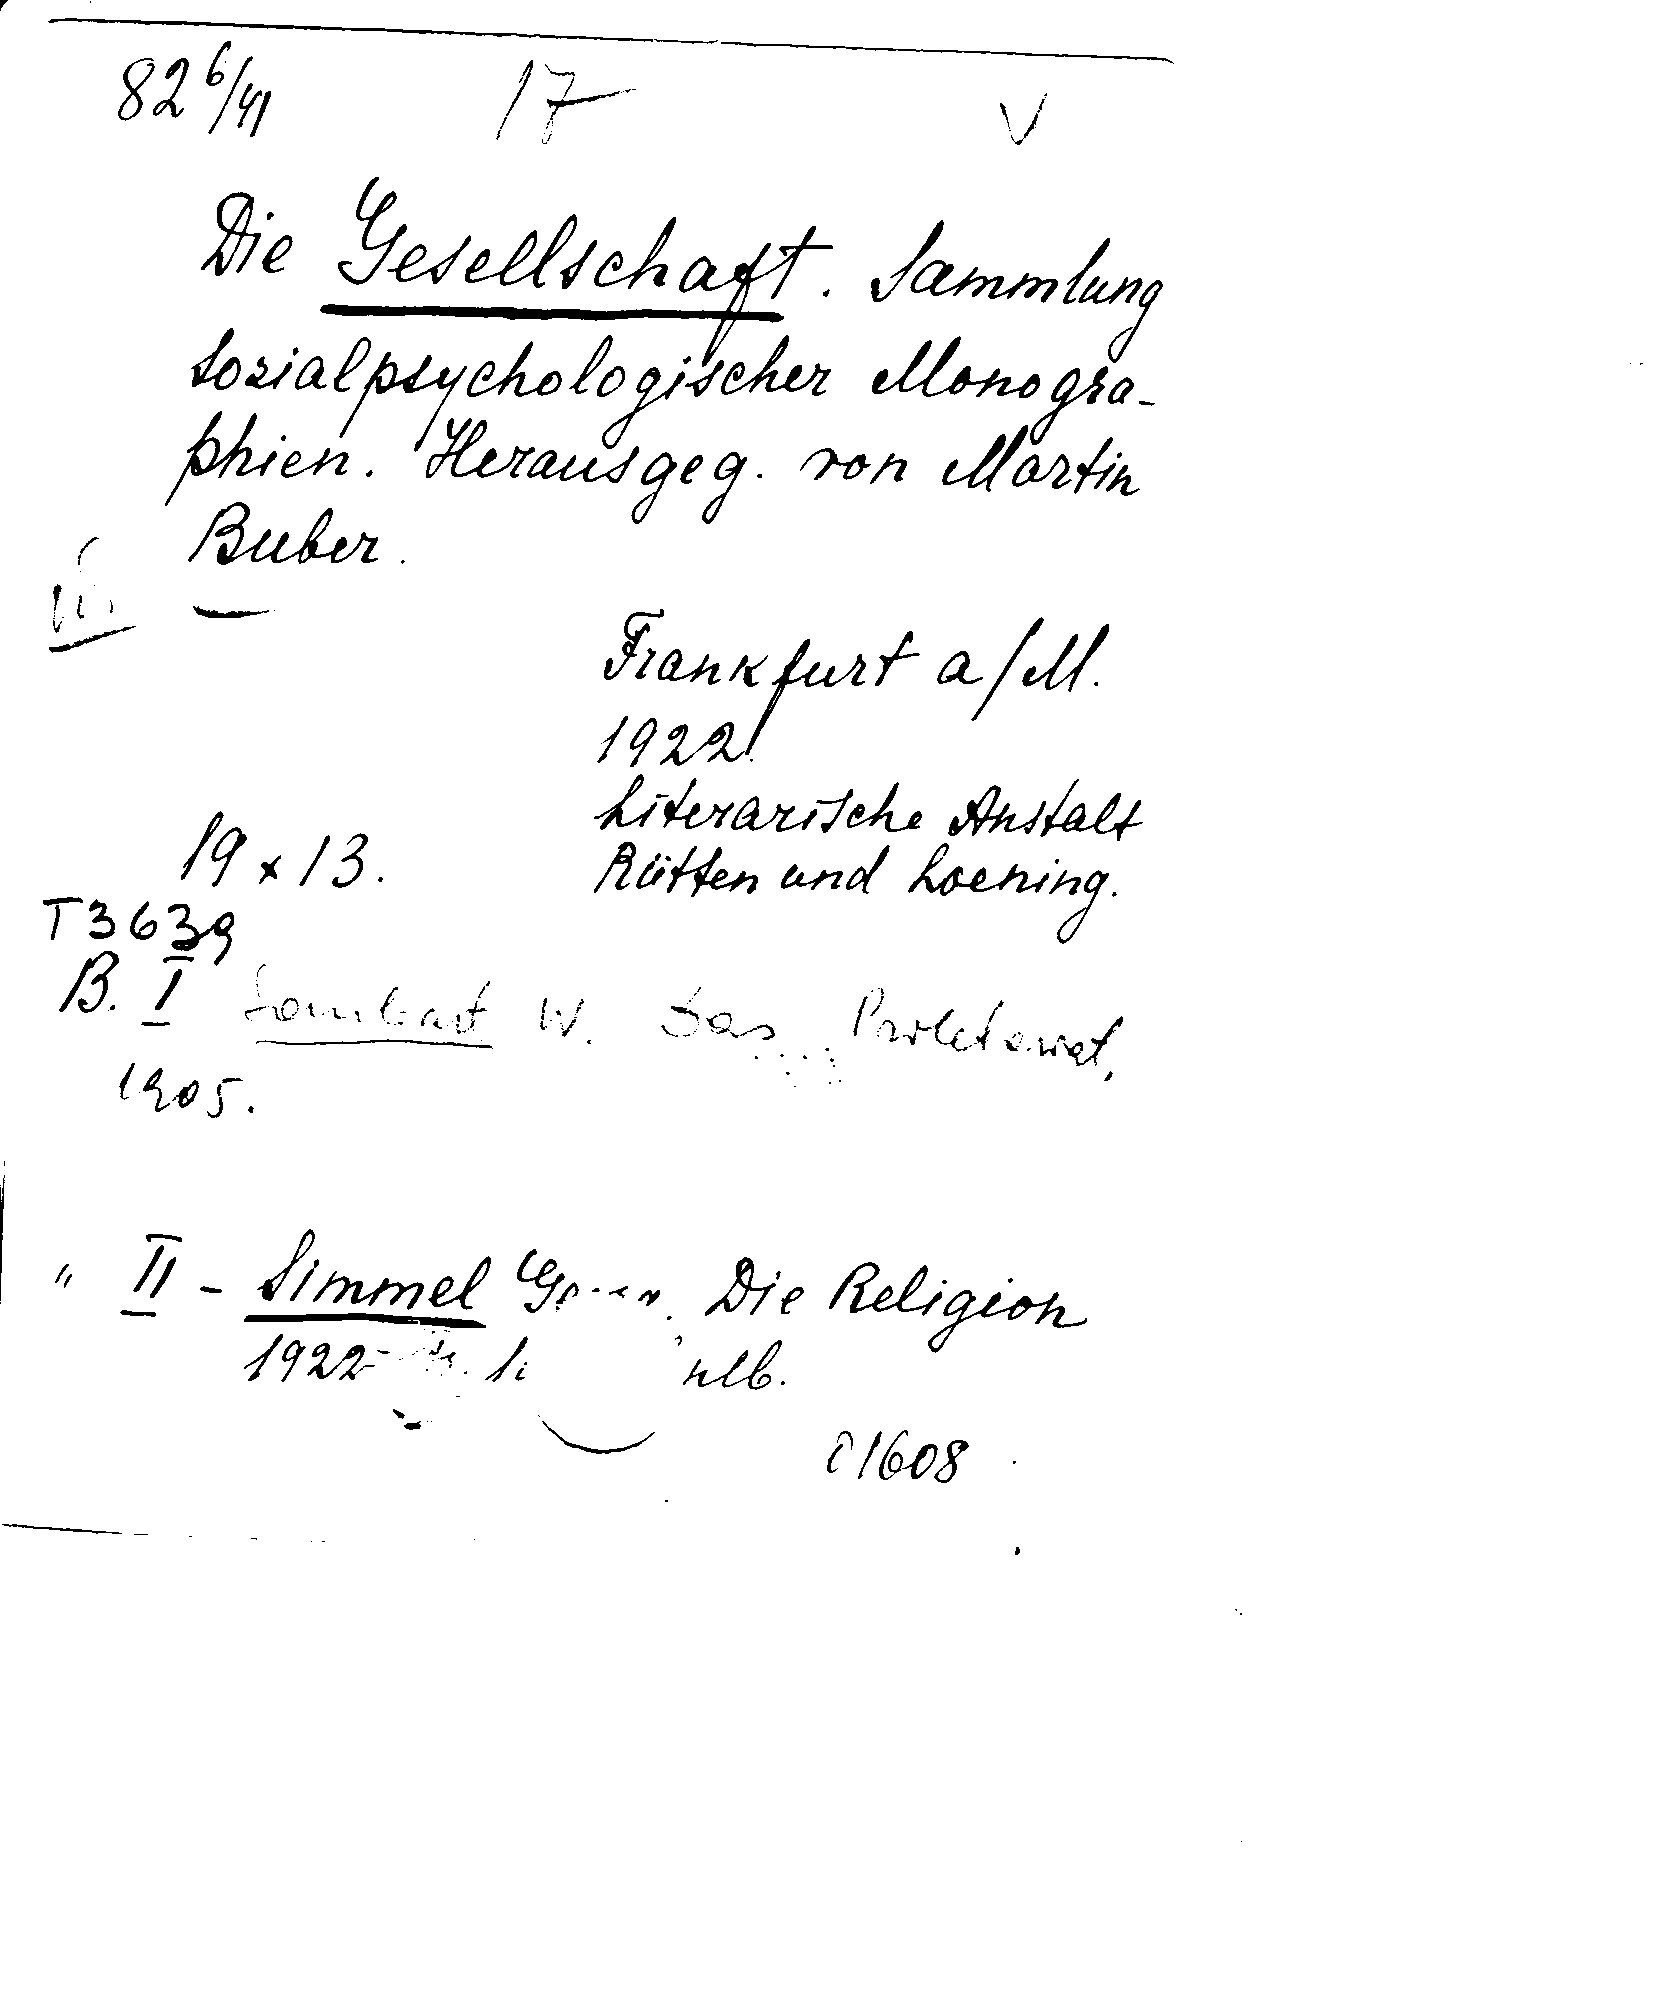 82 6/VI 17 V
Die Gesellschaft. Sammlung
sozialpsychologischer Monogra-
phien. Herausgeg. von Martin
Buber.
Frankfurt a/M.
1922.
Literarische Anstalt
19 x 13.
Rütten und Loening.
T3639
B. I Sombart W. Das Proletariat,
1905.
" II - Simmel Die Religion
1922
1608